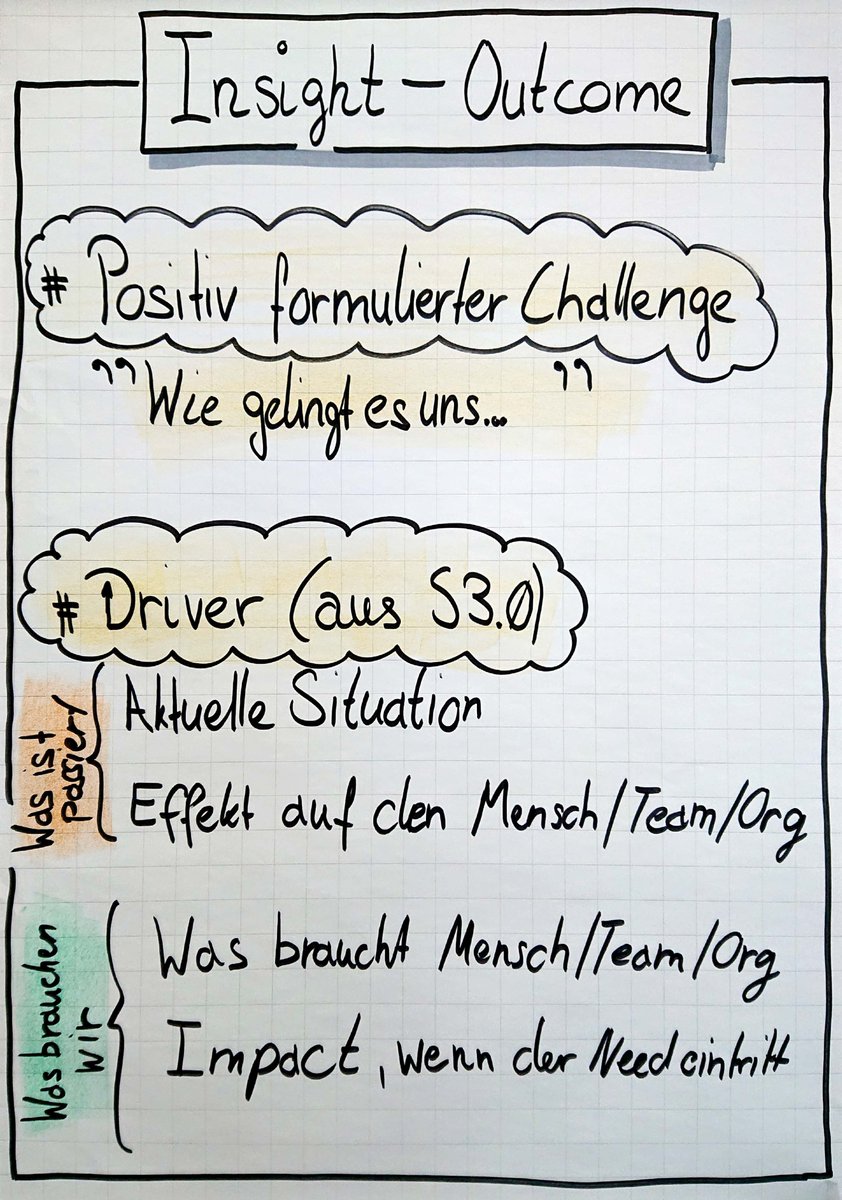 Insight - Outcome
# Positiv formulierter Challenge
"Wie gelingt es uns... "
# Driver (aus S3.0)
Was ist
passiert
Aktuelle Situation
Effekt auf den Mensch/Team/Org
Was brauchen
wir
Was braucht Mensch/Team/Org
Impact, wenn der Need eintritt